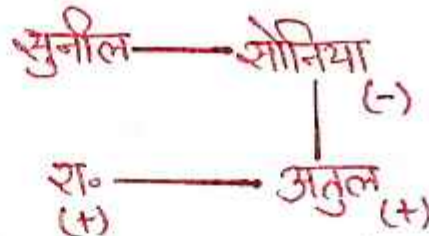 सुनील सोनिया
(-)
रा॰ अतुल
(+) (+)